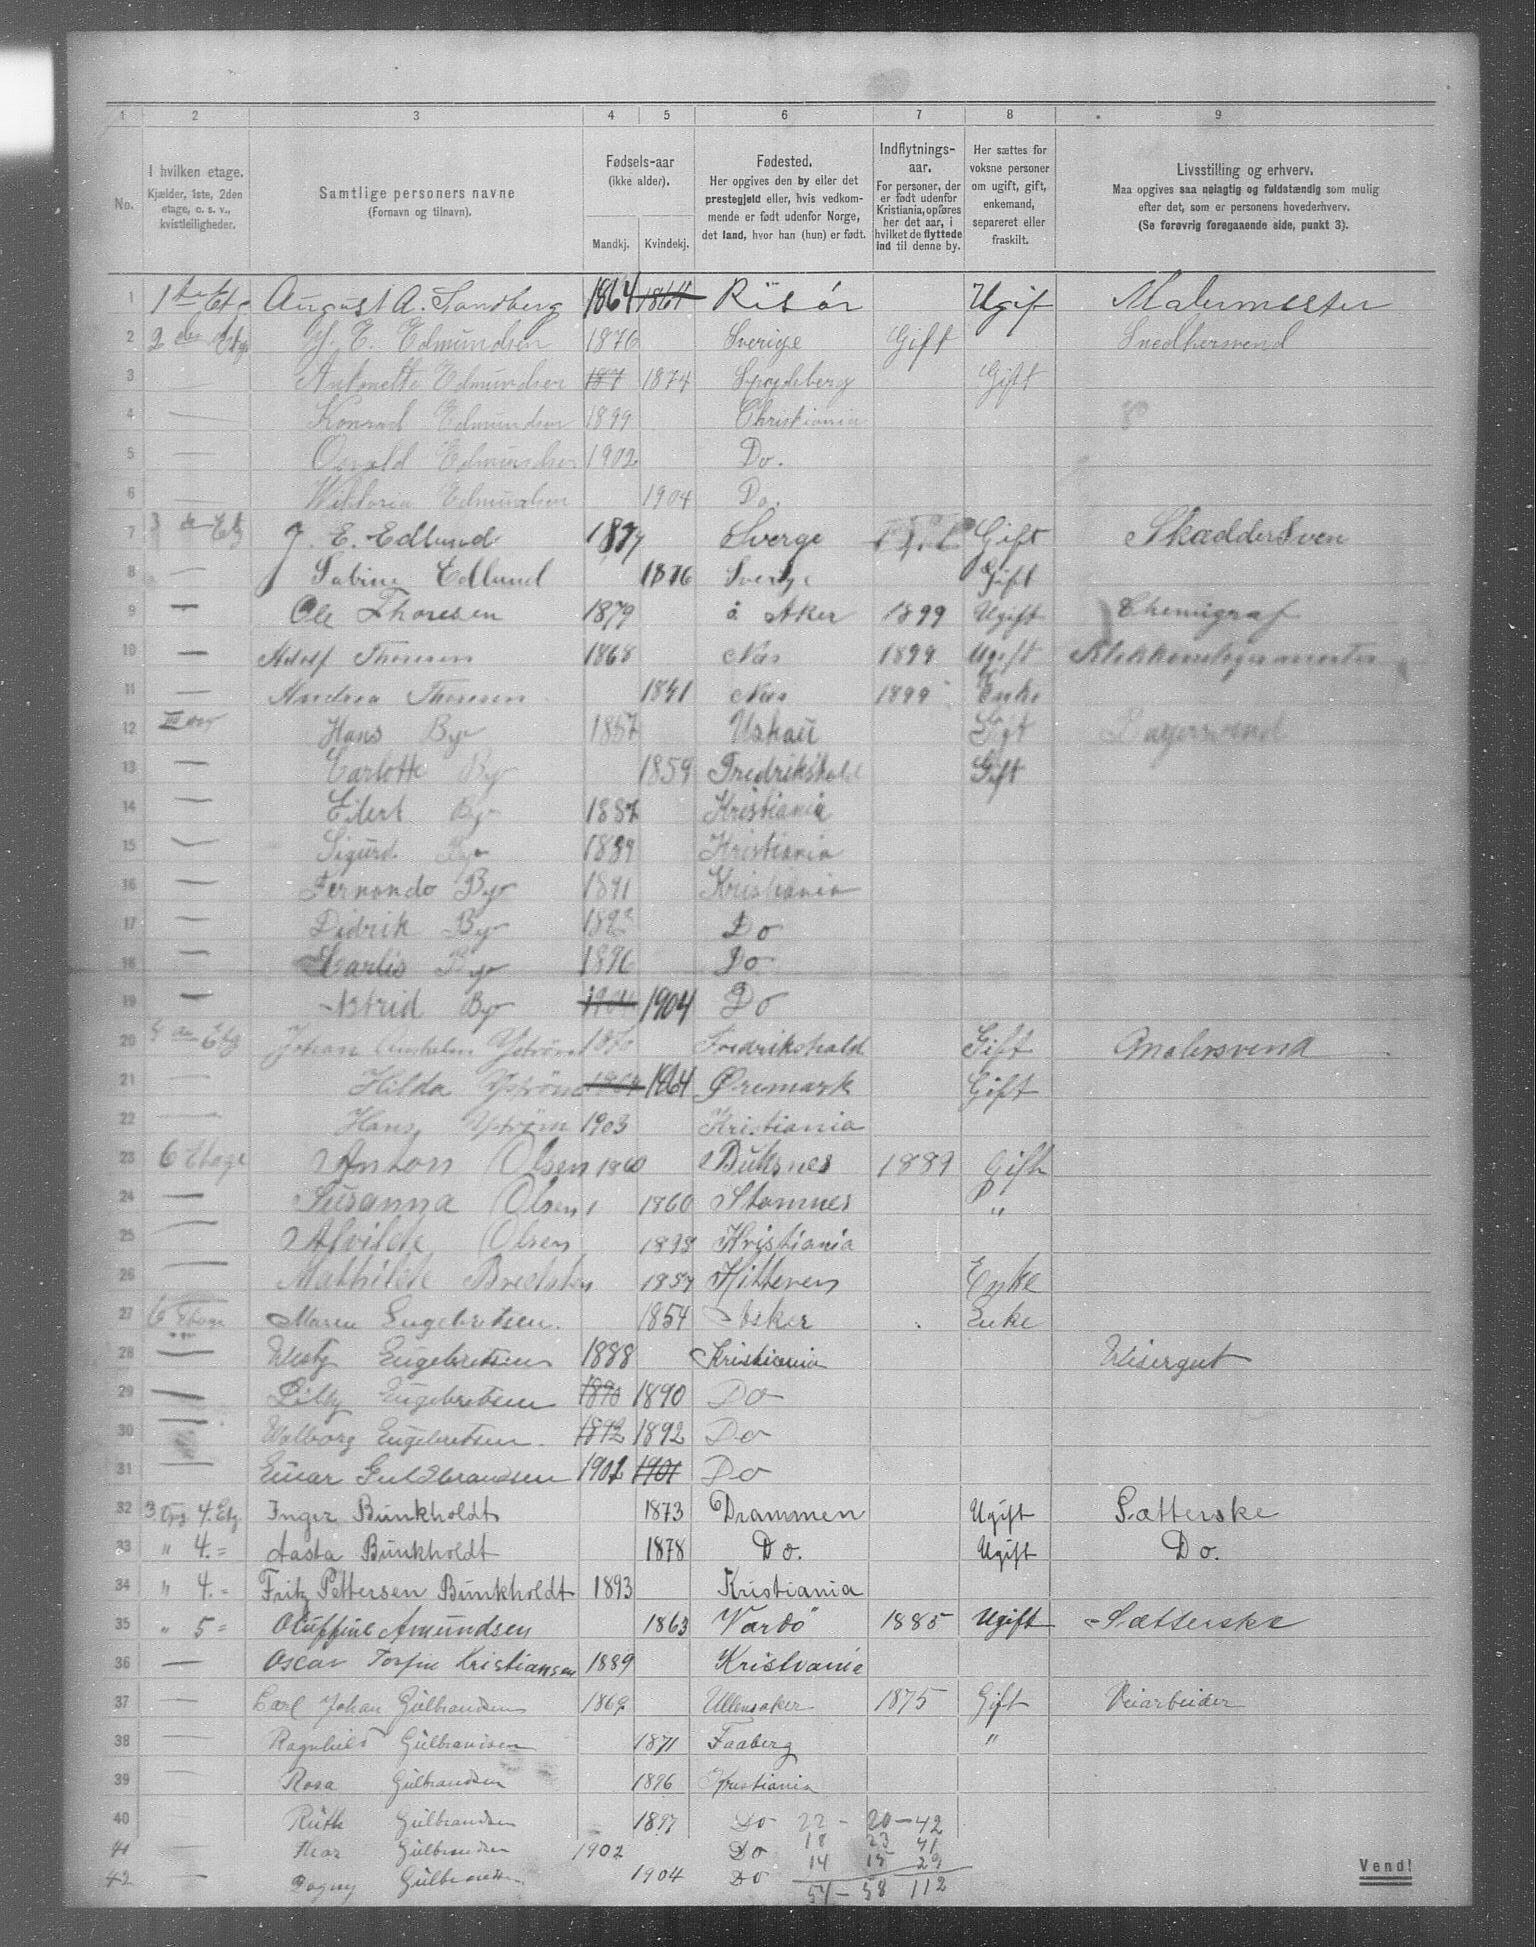 1 2 3 4 5 6 7 8 9
No. I hvilken etage. Kjælder, 1ste, 2den etage, o. s. v., kvistleiligheder. Samtlige personers navne (Fornavn og tilnavn). Fødsels-aar (ikke alder). Mandkj. Kvindekj. Fødested. Her opgives den by eller det prestegjeld eller, hvis vedkommende er født udenfor Norge, det land, hvor han (hun) er født. Indflytnings-aar. For personer, der er født udenfor Kristiania, opføres her det aar, i hvilket de flyttede ind til denne by. Her sættes for voksne personer om ugift, gift, enkemand, separeret eller fraskilt. Livsstilling og erhverv. Maa opgives saa nøiagtig og fuldstændig som mulig efter det, som er personens hovederhverv. (Se forøvrig foregaaende side, punkt 3).
1 1ste Etg August A. Sandberg 1864 1864 Risør Ugif Malermester
2 2den Etg E. Edmundsen 1876 Sverige Gift Snedkersvend
3 Antonette Edmundsen 187 1874 Spydeberg Gift
4 Konrad Edmundsen 1899 Christiania
5 Osvald Edmundsen 1902 Do.
6 Viktoria Edmundsen 1904 Do.
7 3de Etg J. E. Edlund 1877 Sverge Gift SkædderSven
8 — Sabine Edlund 1876 Sverige Gift
9 — Ole Thoresen 1879 Aker 1899 Ugift Chemigraf
10 — Adolf Thoresen 1868 Næs 1899 Ugift
11 — Andrea Thoresen 1841 Næs 1899 Enke
12 Hans By 1857 Gift Bagersvend
13 — Carlotte By 1859 Fredrikshald Gift
14 — Eilert By 1887 Kristiania
15 — Sigurd By 1889 Kristiania
16 — Fernando By 1891 Kristiania
17 — Didrik By Do
18 — Carlis By 1896 Do
19 — Astrid By 1904 1904 Do
20 Etg Johan Anshelm Ystrøm 1870 Fredrikshald Gift Malersvend
21 — Hilda Ystrøm 1864 1864 Øremark Gift
22 — Hans Ystrøm 1903 Kristiania
23 6 Etage Anton Olsen 1860 Buksnes 1889 Gift
24 — Susanna Olsen 1860 Stamnes "
25 — Alvilde Olsen 1898 Kristiania
26 — Mathilde 1857 Hitteren Enke
27 6 Etage Maren Engebretsen. 1854 Asker Enke
28 — Engebretsen 1888 Kristiania Visergut
29 — Lilly Engebretsen 1890 1890 Do
30 — Valborg Engebretsen. 1892 1892 Do
31 — Einar Guldbrandsen 1901 1901 Do
32 3 Opg. 4. Etg. Inger Bunkholdt 1873 Drammen Ugift Sætterske
33 " 4. = Aasta Bunkholdt 1878 Do. Ugift Do.
34 " 4. = Fritz Pettersen Bunkholdt 1893 Kristiania
35 " 5 = Oluffine Amundsen 1863 Vardö 1885 Ugift Sætterske
36 — Oscar Torfin Kristiansen 1889 Kristiania
37 — Carl Johan Gulbrandsen 1869 Ullensaker 1875 Gift Veiarbeider
38 — Ragnhild Gulbrandsen 1871 Faaberg "
39 — Rosa Gulbrandsen 1896 Kristiania
40 Ruth Gulbrandsen 1897 Do 22 — 20 — 42
41 Thor Gulbrandsen 1902 Do 18 23 41
42 — Dagny Gulbrandsen 1904 Do 14 15 29
54 — 58 112
Vend!